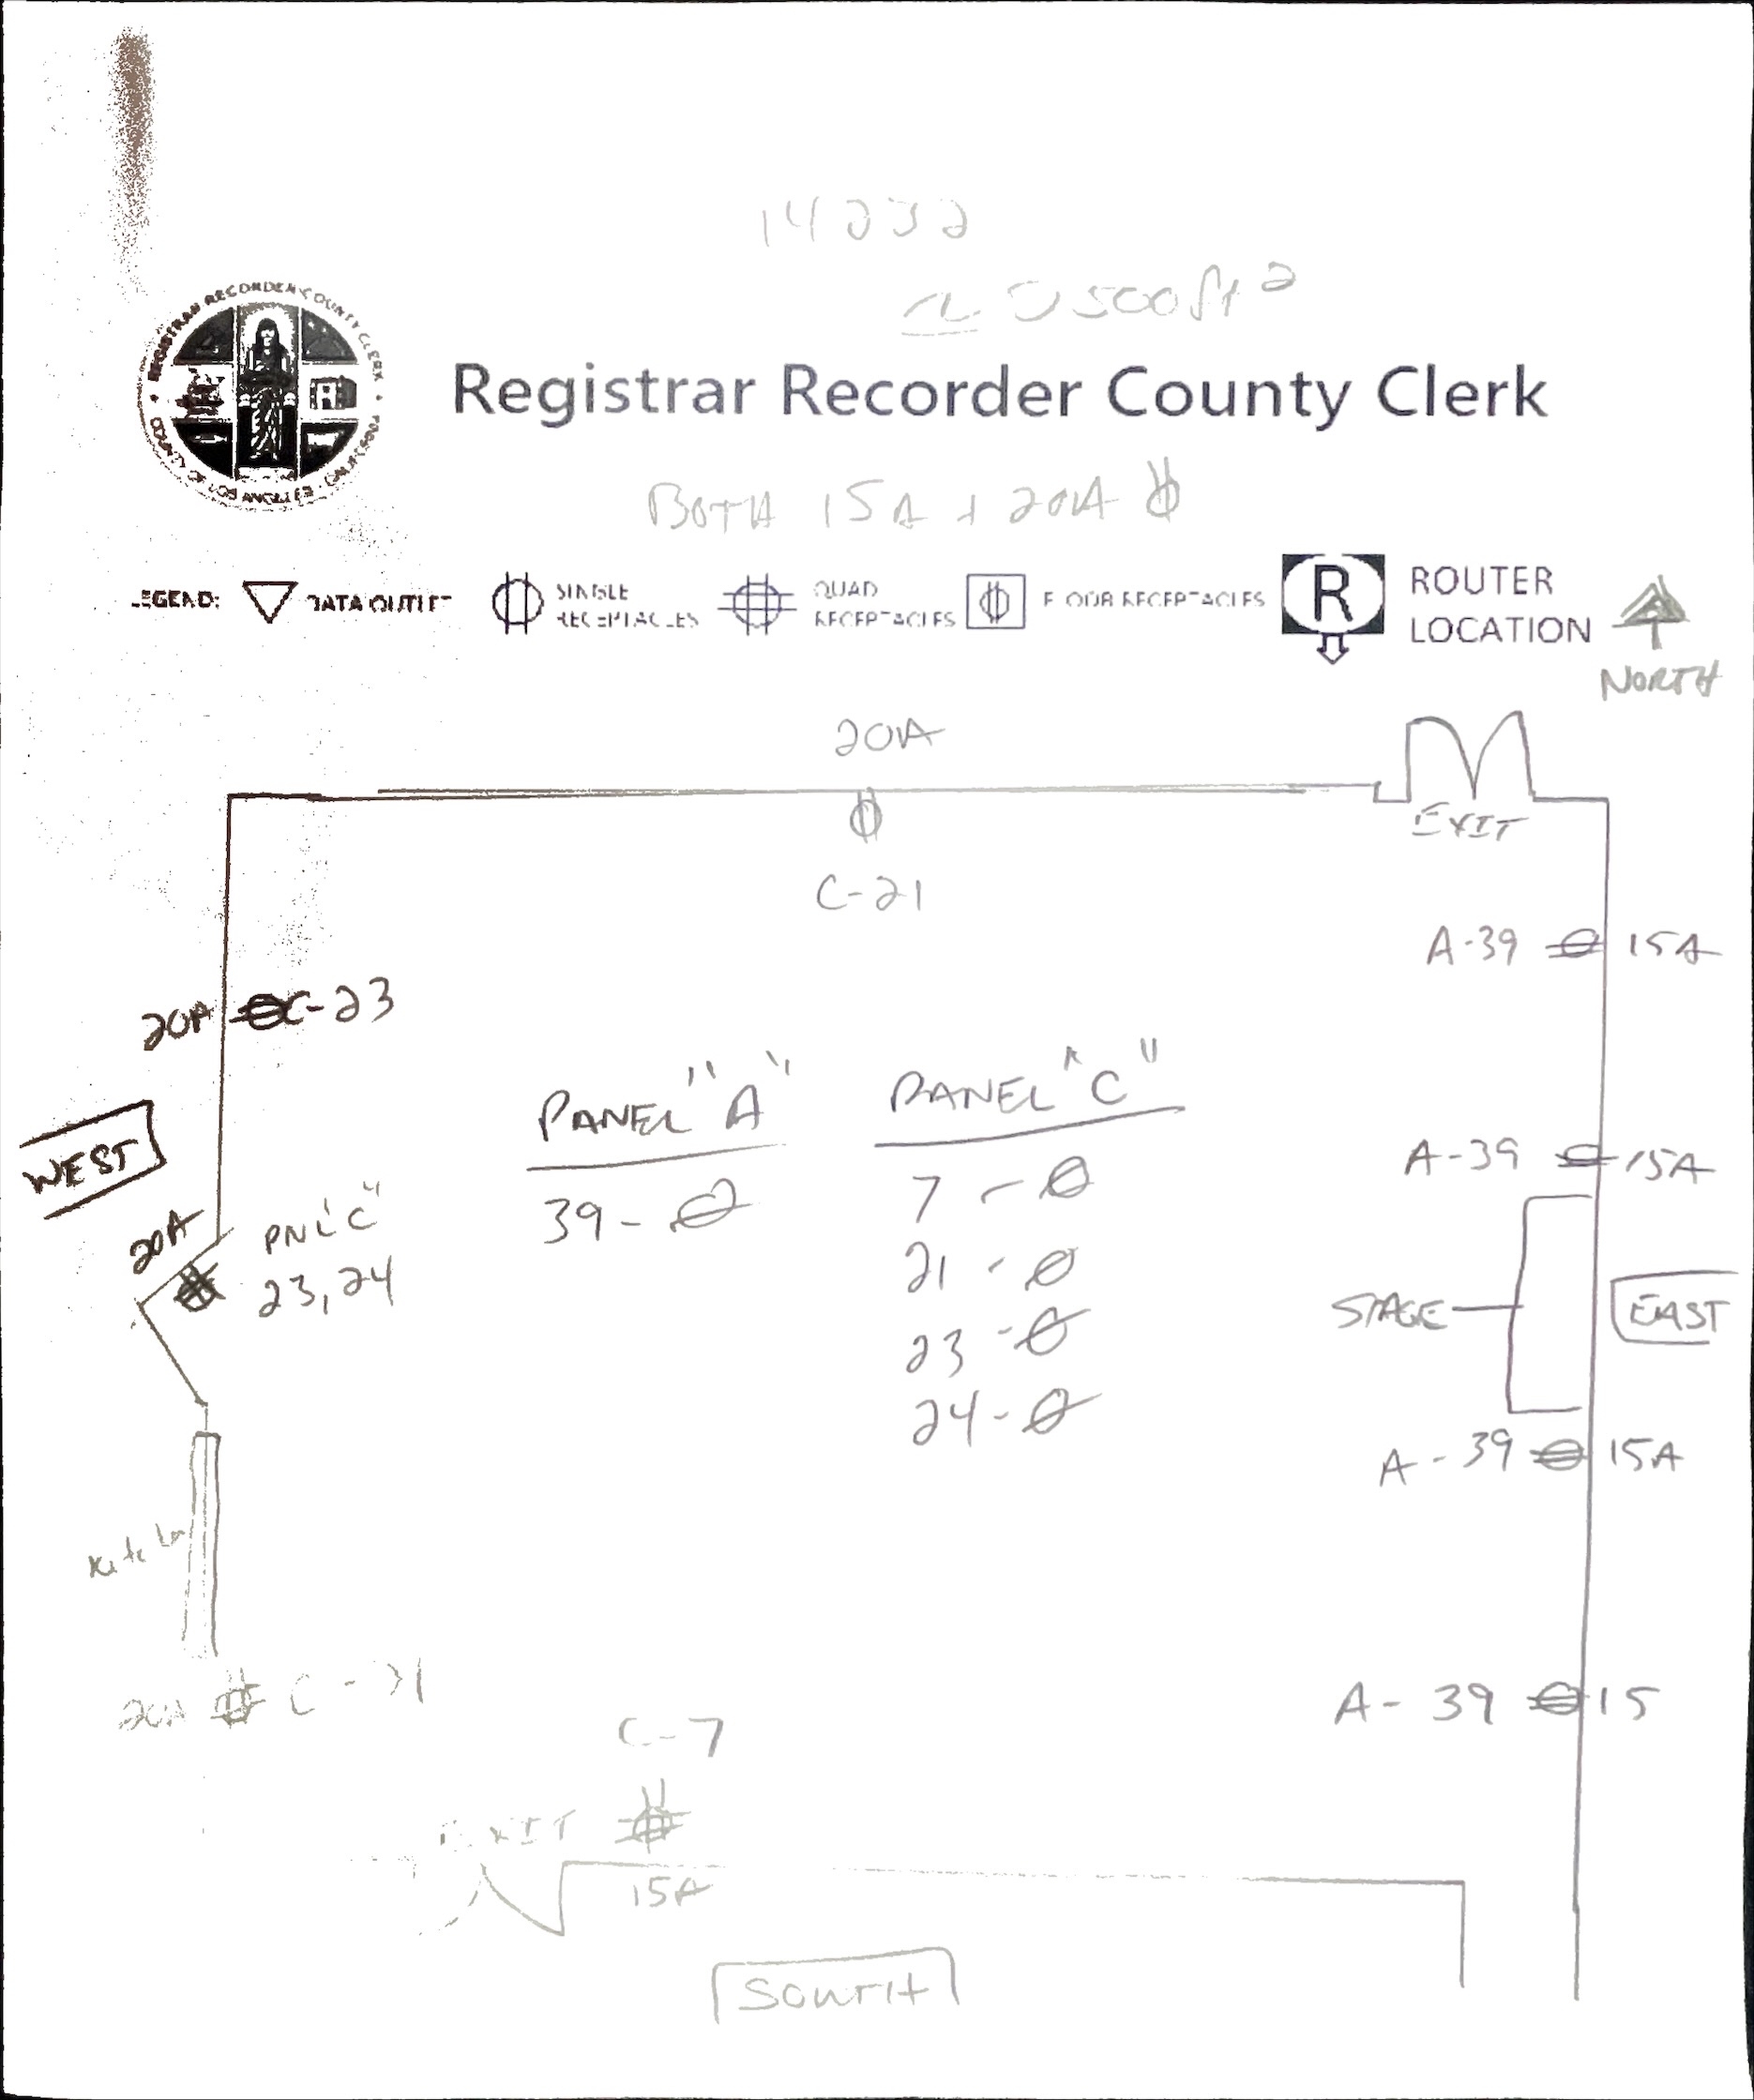 14232
5500ft²
REGISTRAR RECORDER COUNTY CLERK
COUNTY OF LOS ANGELES
Registrar Recorder County Clerk
BOTH 15A + 20A
LEGEND:
DATA OUTLET
SINGLE
RECEPTACLES
QUAD
RECEPTACLES
FLOOR RECEPTACLES
R
ROUTER
LOCATION
NORTH
20A
EXIT
C-21
A-39 15A
20A C-23
PANEL "A"
PANEL "C"
WEST
A-39 15A
7 -
39 -
20A
PNL "C"
23, 24
21 -
STAGE
EAST
23 -
24 -
A-39 15A
20A C-
A-39 15
C-7
EXIT
15A
SOUTH